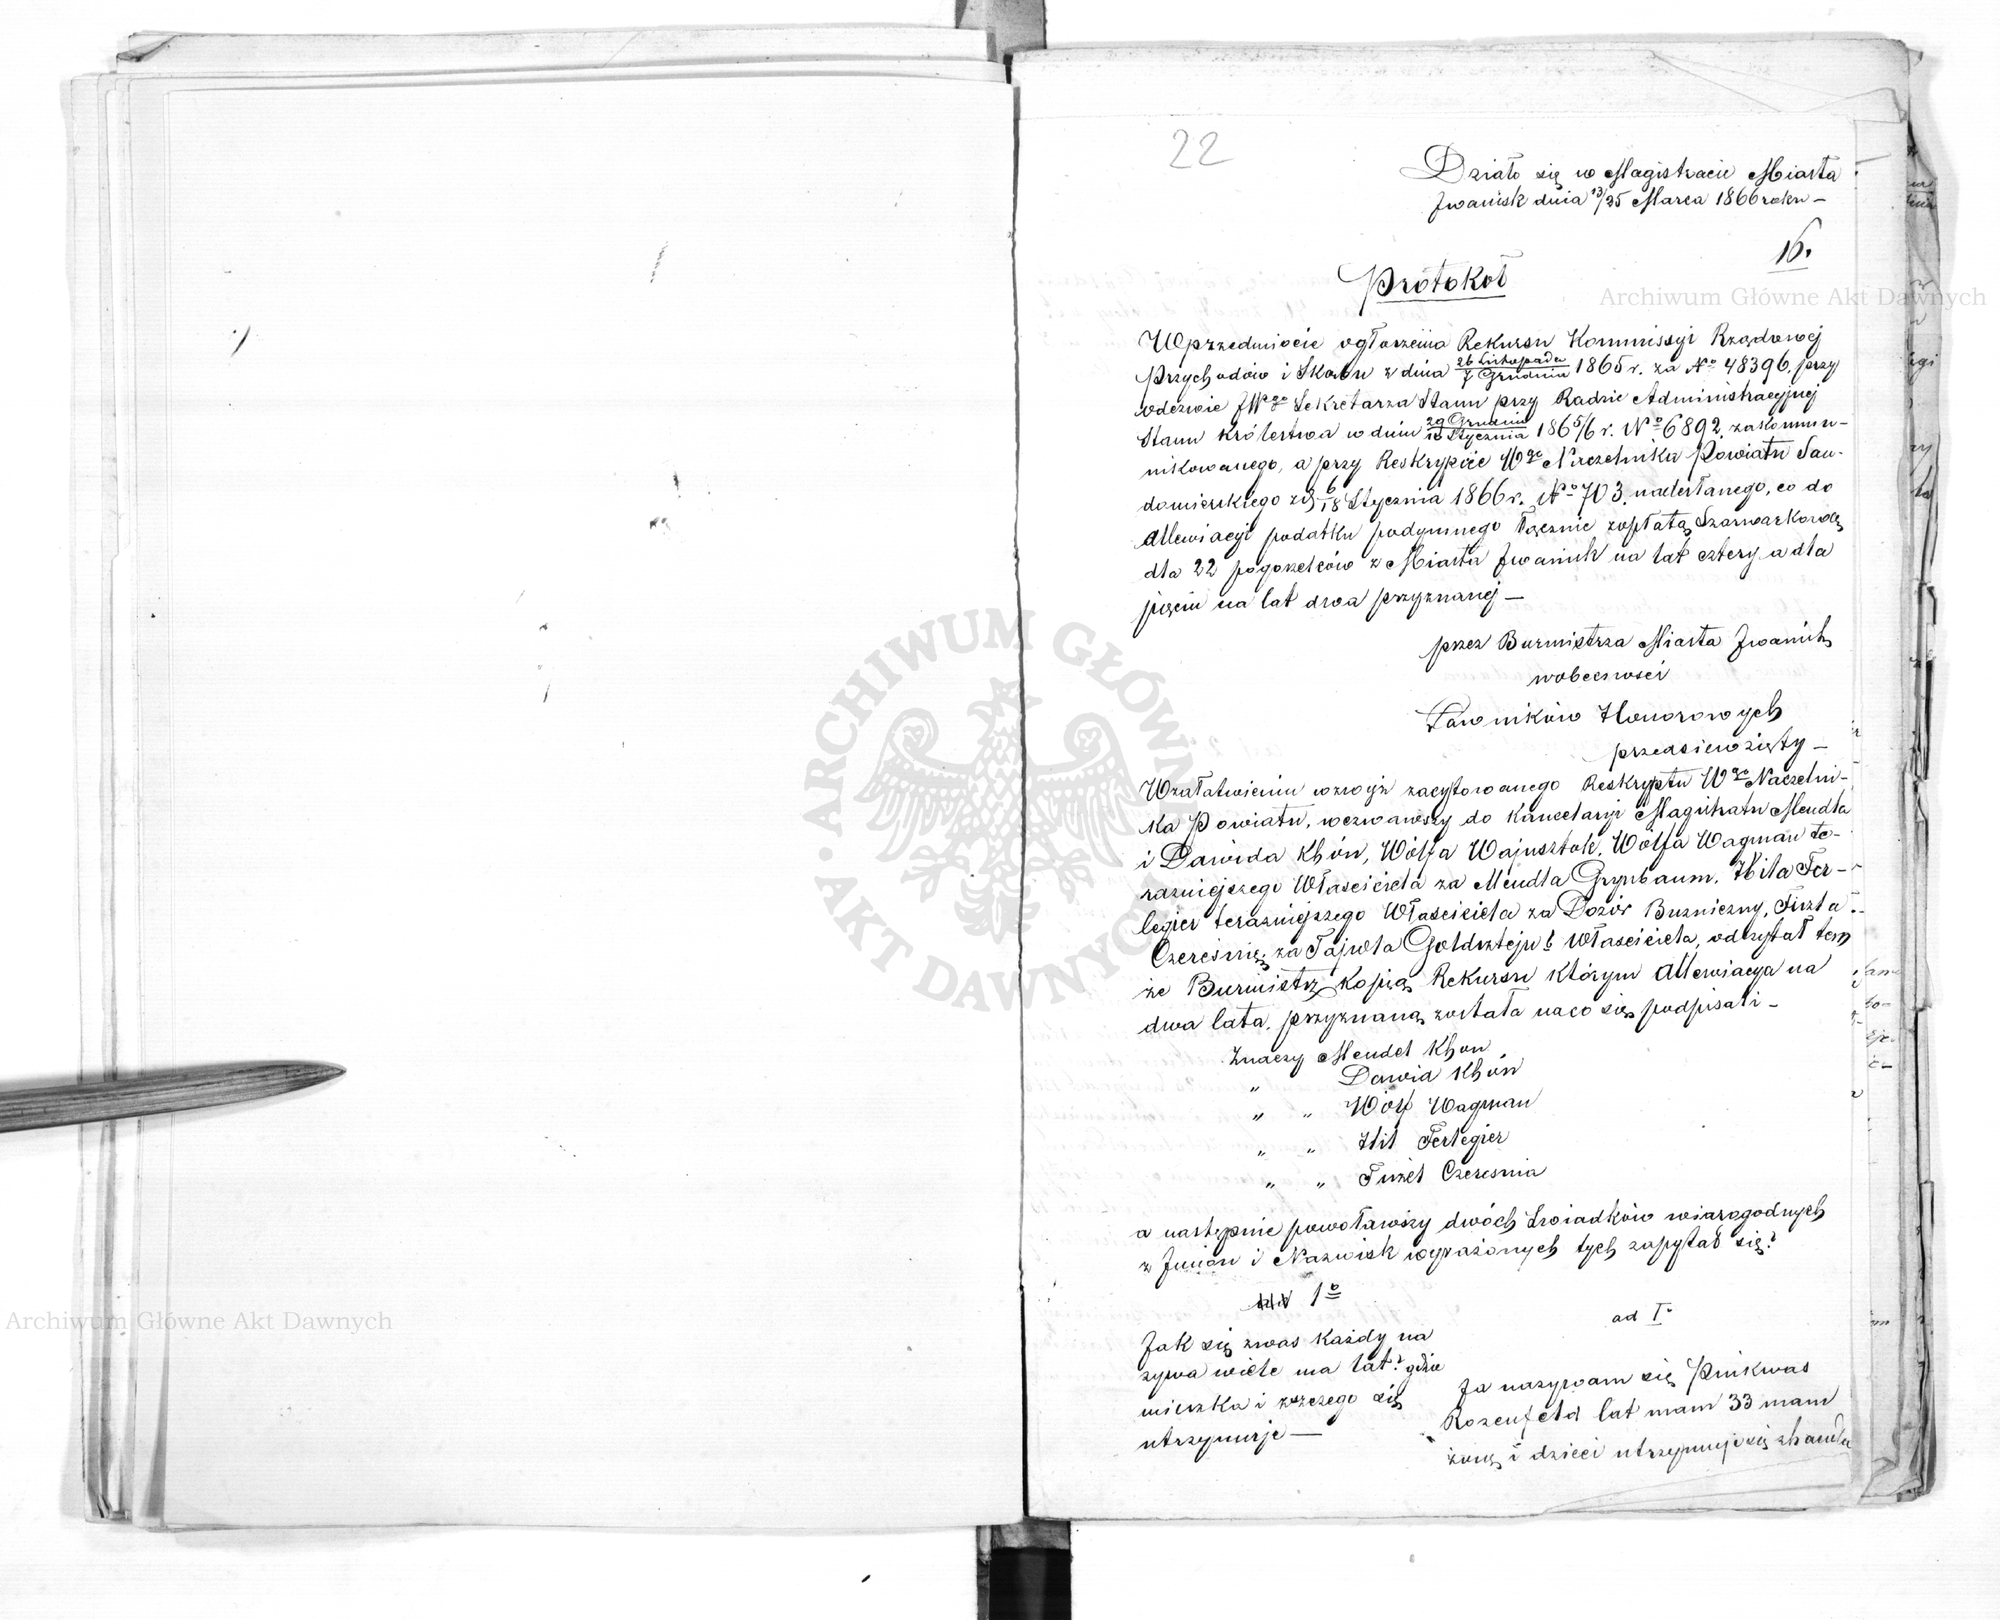 22
Działo się w Magistracie Miasta
Iwanisk dnia 13/25 Marca 1866 roku –
16.
Protokół
Wprzedmiocie ogłoszenia Rekursu Kommissyi Rządowej
Przychodów i Skarbu z dnia 26 Listopada/7 Grudnia 1865 r. za No 48396, przy
odezwie JWgo Sekretarza Stanu przy Radzie Administracyjnej
Stanu Królestwa w dniu 29 Grudnia/10 Stycznia 1865/6 r. No 6892. zakommu-
nikowanego, a przy Reskrypcie Wgo Naczelnika Powiatu San-
domierskiego z d 6/18 Stycznia 1866 r. No 703. nadesłanego, co do
allewiacyi podatku podymnego łącznie zopłatą Szarwarkową
dla 22 pogorzelców z Miasta Iwanisk na lat cztery a dla
pięciu na lat dwa przyznanej –
przez Burmistrza Miasta Iwanisk
wobecności
Ławników Honorowych
przedsiewzięty –
Wzałatwieniu wzwyż zacytowanego Reskryptu Wgo Naczelni-
ka Powiatu, wezwawszy do Kancelaryi Magistratu Mendla
i Dawida Khón, Wólfa Wajnsztok, Wólfa Wagman te-
razniejszego Właściciela za Mendla Grynbaum, Hila Fer-
legier terazniejszego Właściciela za Dozór Buzniczny, Fiszla
Czereśnię za Fajwla Goldsztejn b Właściciela, odczytał tem
że Burmistrz kopią Rekursu którym allewiacya na
dwa lata, przyznaną została naco się podpisali –
Znaczy Mendel Khon
" Dawid Khón
" " Wólf Wagman
" " Hil Ferlegier
" " Fiszel Czeresnia
a następnie powoławszy dwóch Swiadków wiarogodnych
z Imion i Nazwisk wyrażonych tych zapytał się?
1o
Jak się zwas każdy na
zywa wiele ma lat? gdzie
mieszka i zczego się
utrzymuje —
ad I.
Ja nazywam się Pinkwas
Rozenfeld lat mam 33 mam
żonę i dzieci utrzymuje się zhandlu
Archiwum Główne Akt Dawnych
Archiwum Główne Akt Dawnych
ARCHIWUM GŁÓWNE AKT DAWNYCH